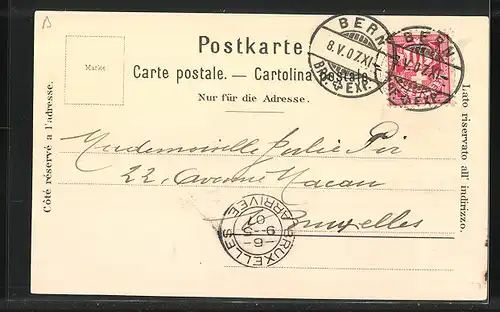 Postkarte.
Carte postale. — Cartolina postale.
Nur für die Adresse.
Marke.
Côté réservé à l'adresse.
Lato riservato all' indirizzo.
BERN
8.V.07.XI-
BRF. EXP.
BERN
8.V.07.XI-
BRF. EXP.
Mademoiselle Julie Pir
22, avenue Macau
Bruxelles
BRUXELLES
6-
9-5
07
ARRIVÉE